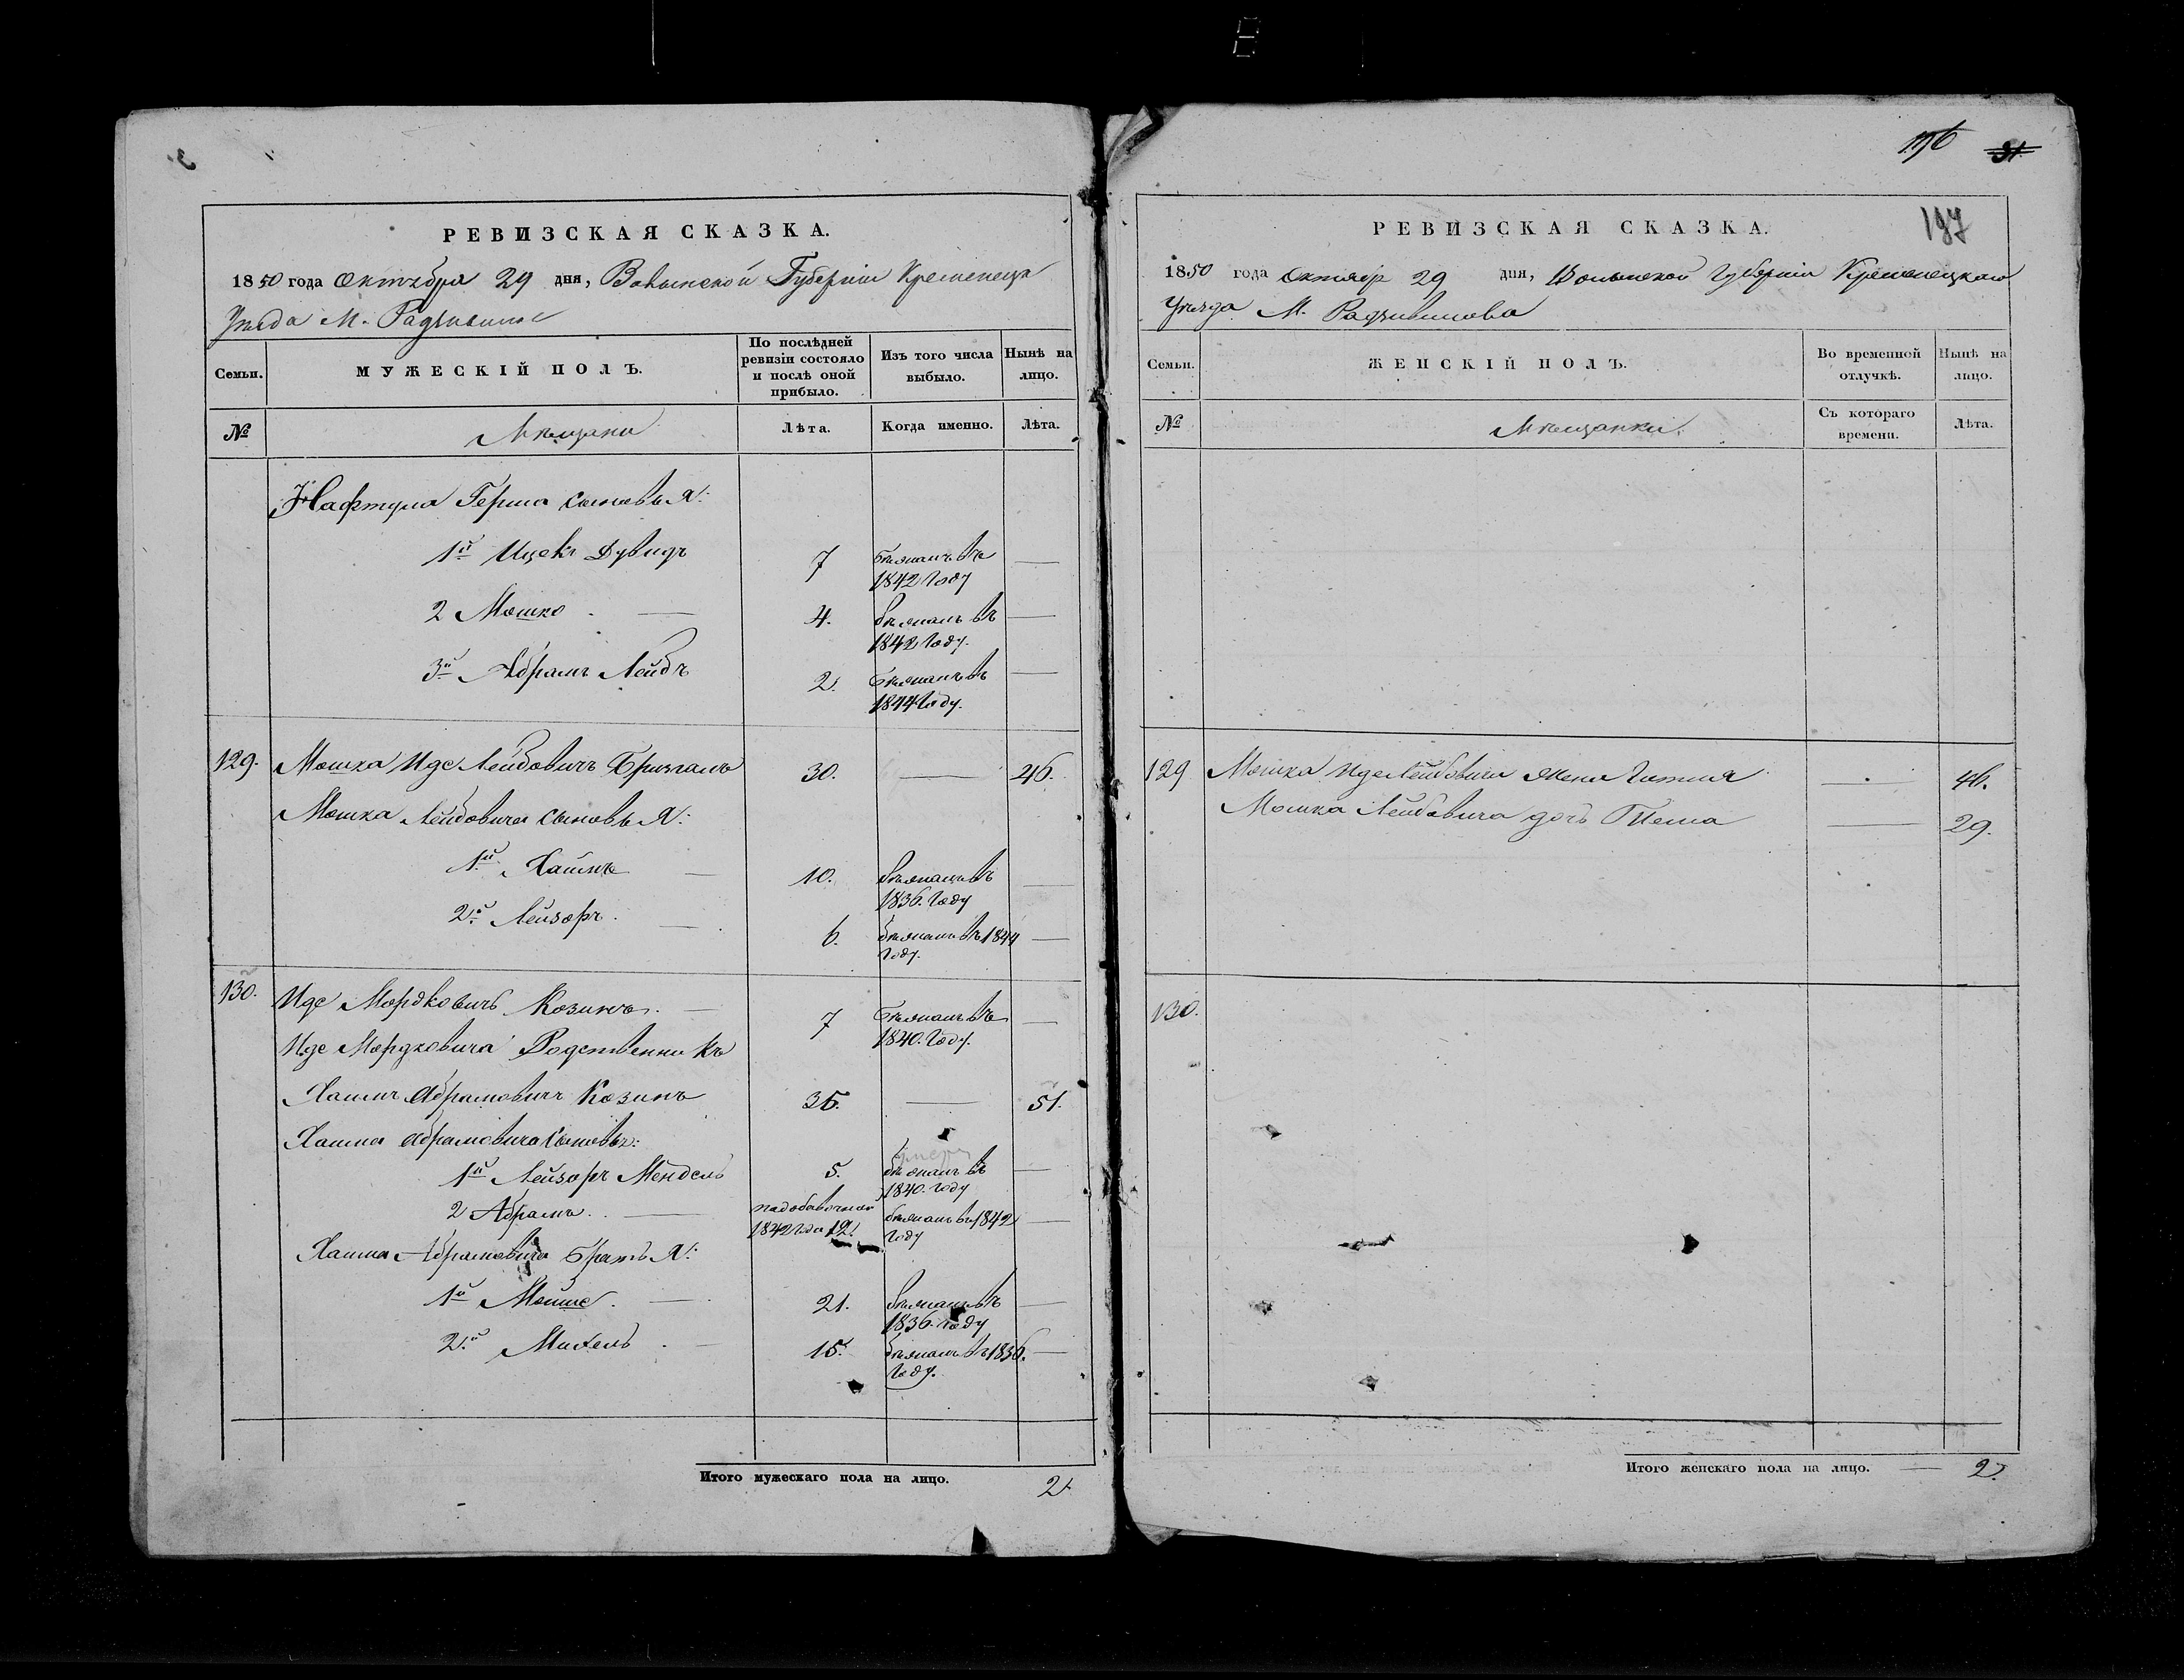 РЕВИЗСКАЯ СКАЗКА.
1850 года Октября 29 дня, Волынской Губерніи Кременецк
Уезда М. Радзивилов
Семьи. МУЖЕСКІЙ ПОЛЪ. По послѣдней ревизіи состояло и послѣ оной прибыло. Изъ того числа выбыло. Нынѣ на лицо.
№ Мѣщани Лѣта. Когда именно. Лѣта.
Нафтула Герша сыновья:
1й Ицекъ Дувидъ 7 бѣжалъ въ 1842 году —
2 Мошко — 4. бѣжалъ въ 1842 году. —
3й Абрамъ Лейбъ 2. бѣжалъ въ 1844 году. —
129. Мошка Иде Лейбовичъ 30. — 46.
Мошка Лейбовича сыновья:
1й Хаимъ — 10. бѣжалъ въ 1836. году —
2й Лейзоръ — 6. бѣжалъ въ 1844 году. —
130. Иде Мордковичъ Козинъ — 7 бѣжалъ въ 1840. году. —
Иде Мордковича Родственникъ
Хаимъ Абрамовичъ Козинъ 35. — 51.
Хаима Абрамовича сыновья:
1й Лейзоръ Мендель 5. бѣжалъ въ 1840. году —
2 Абрамъ — 1842 года 12. бѣжалъ въ 1842 году —
Хаима Абрамовича братья:
1й Мойше — 21. бѣжалъ въ 1836. году —
2й Михель — 15. бѣжалъ въ 1836. году. —
Итого мужескаго пола на лицо. 2.
196 31.
197
РЕВИЗСКАЯ СКАЗКА.
1850 года Октябр 29 дня, Волынской Губерніи Кременецкаго
Уезда М. Радзивилова
Семьи. ЖЕНСКІЙ ПОЛЪ. Во временной отлучкѣ. Нынѣ на лицо.
№ Мѣщанки. Съ котораго времени. Лѣта.
129 Мошка Иде Лейбовича жена — 46.
Мошка Лейбовича дочь — 29.
130.
Итого женскаго пола на лицо. — 2.